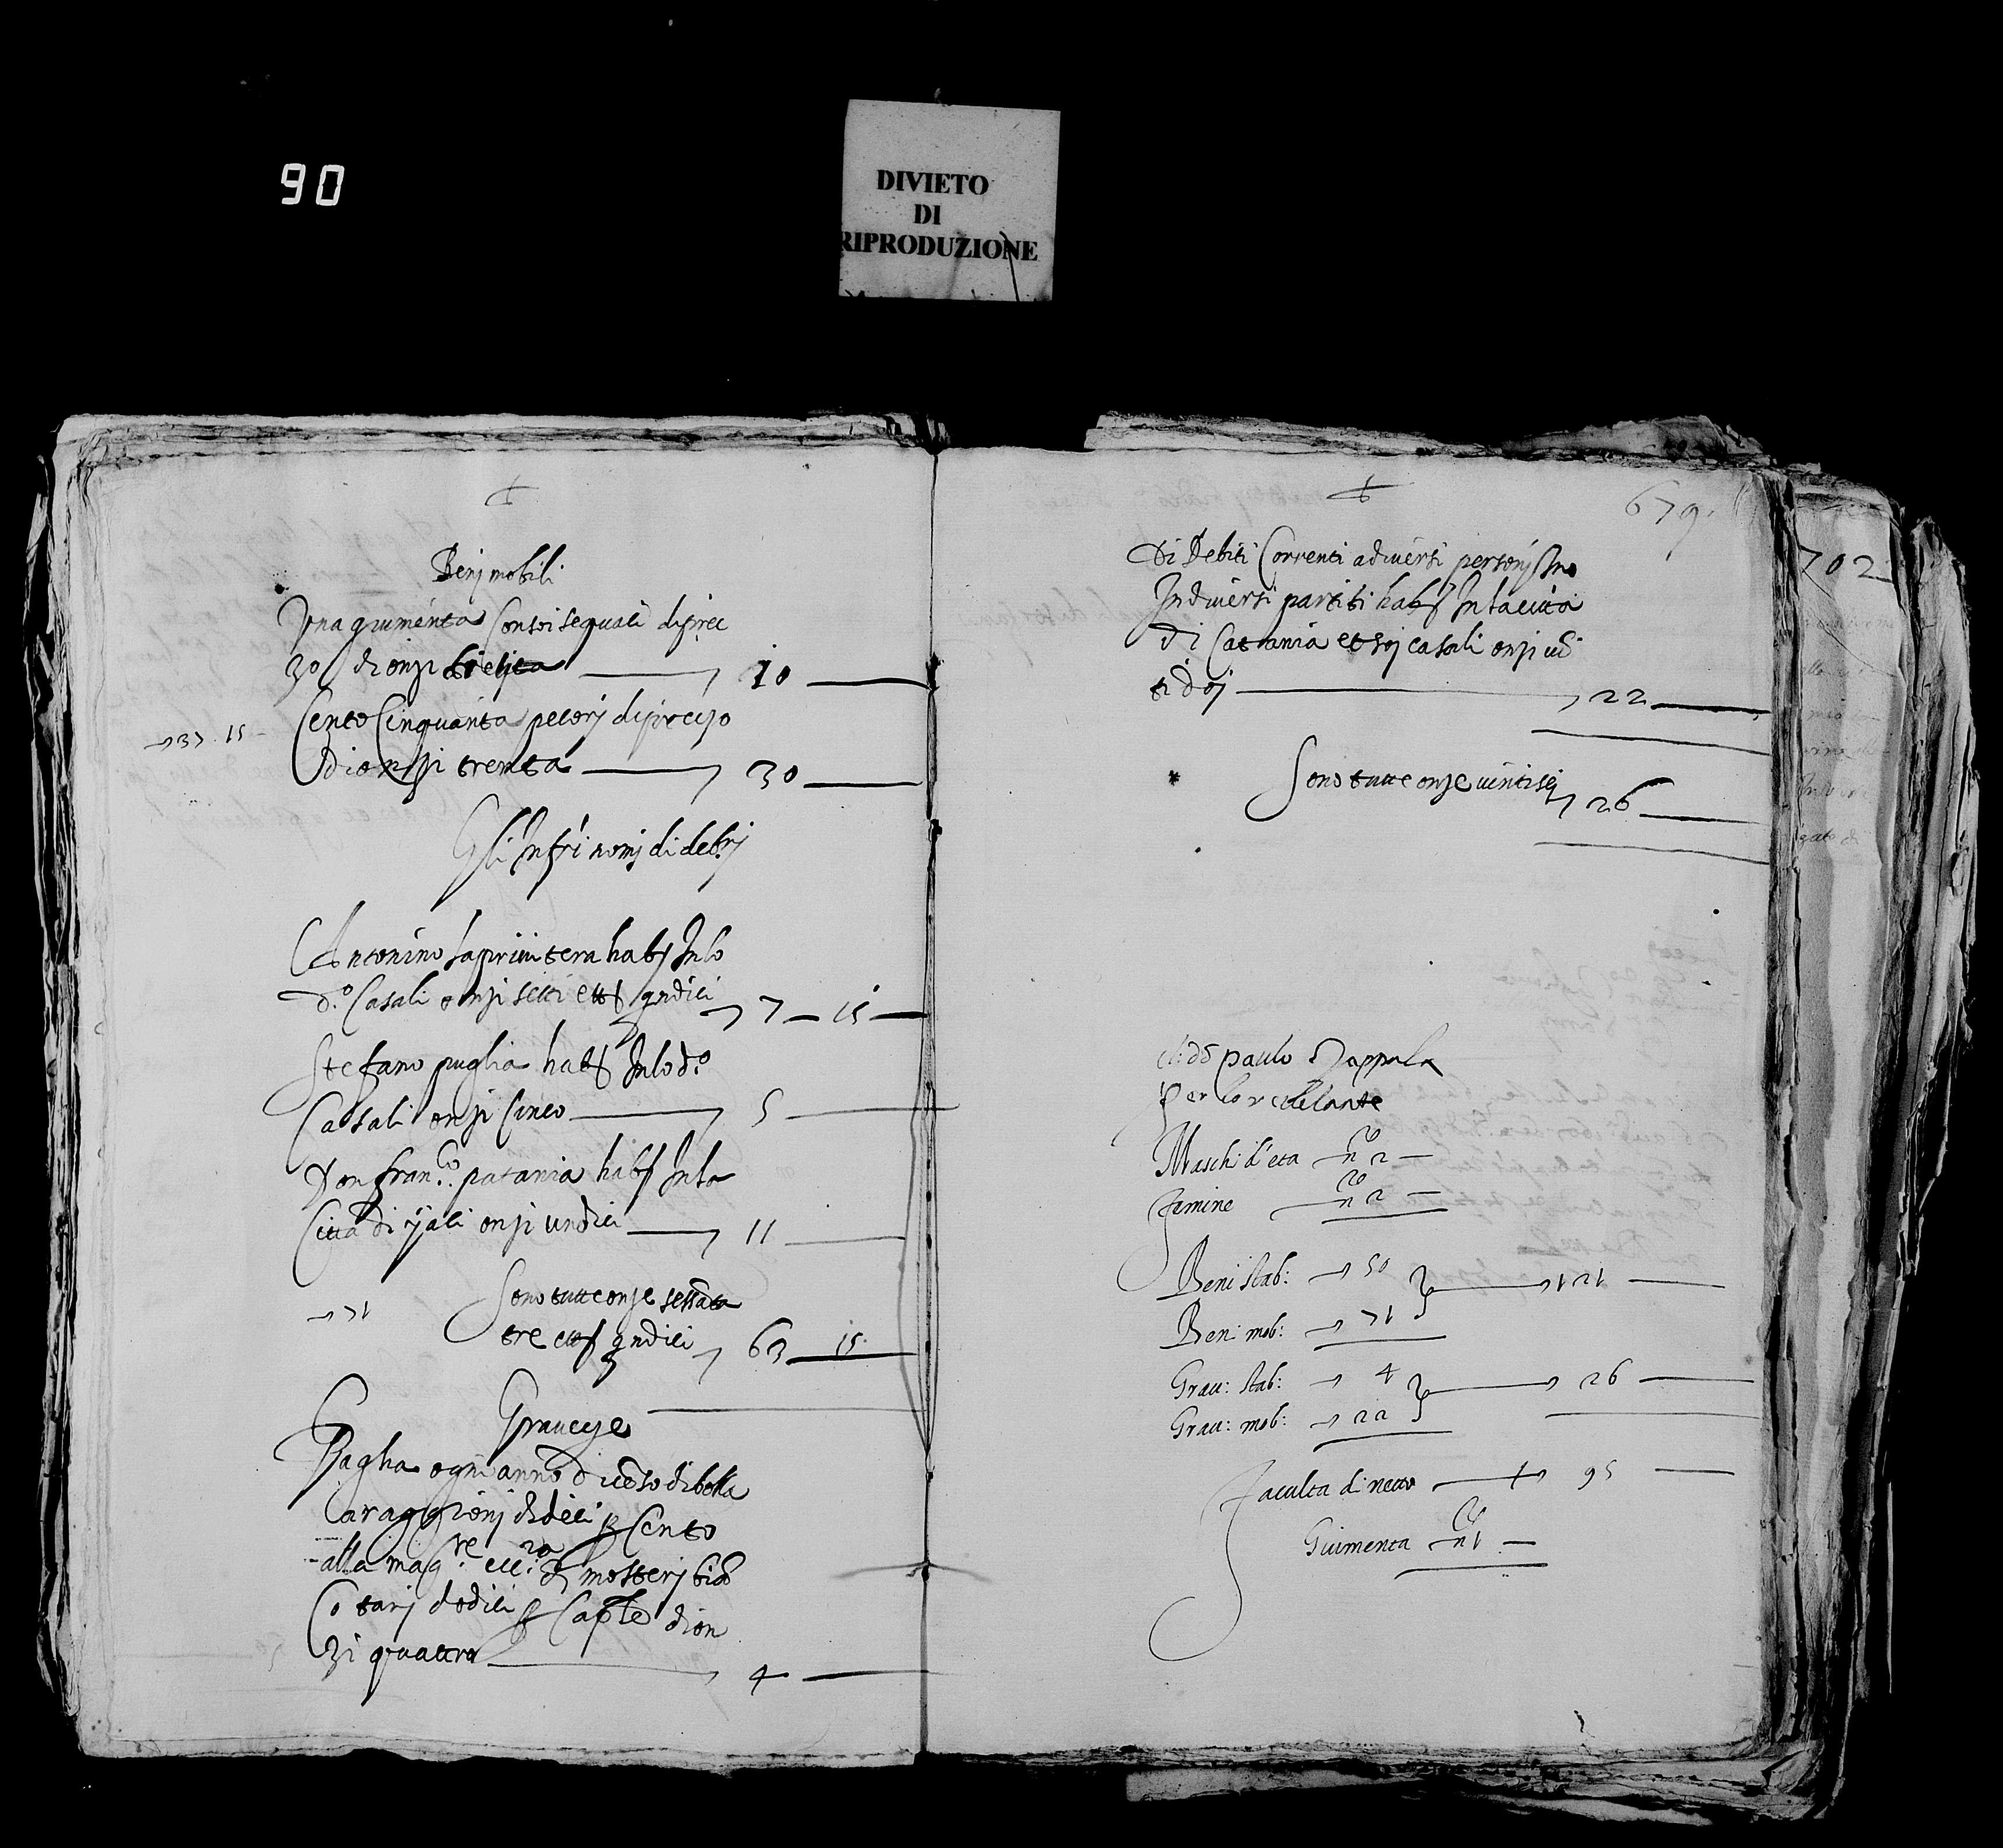 90
DIVIETO
DI
RIPRODUZIONE
Benj mobili
Una giumenta Con soi sequali di prec
zo di onzi 10
Cento Cinquanta pecorj di preczo
di onzi trenta 30
37. 15
Gl'infri nomj di debrj
Antonino la habj In lo
d.º Casali onzi setti et tt qndici 7 15
Stefano puglia habj In lo d.º
Casali onzi Cinco 5
Don fran.co patania habj In la
Citta di Jaci onzi undici 11
71
Sono tutte onze sessāta
tre et tt qndici 63 15
Gravecze
Pagha ogni anno di
araggionj di deci p Cento
alla mag.re
Co tarj dodici p Cap.le di on
zi quattro 4
679.
Di Debiti Correnti a diversi personj
In diversi partiti habj In la citta
di Catania et soj casali onzi vē
ti doj 22
Sono tutte onze vintisej 26
702
d. paulo Dappula
per lo revelante
Maschi d'eta n.ro 2
famine n.ro 2
Beni stab: 50
121
Beni mob: 71
Grav: stab: 4
26
Grav: mob: 22
faculta di netto 95
Giumenta n 1